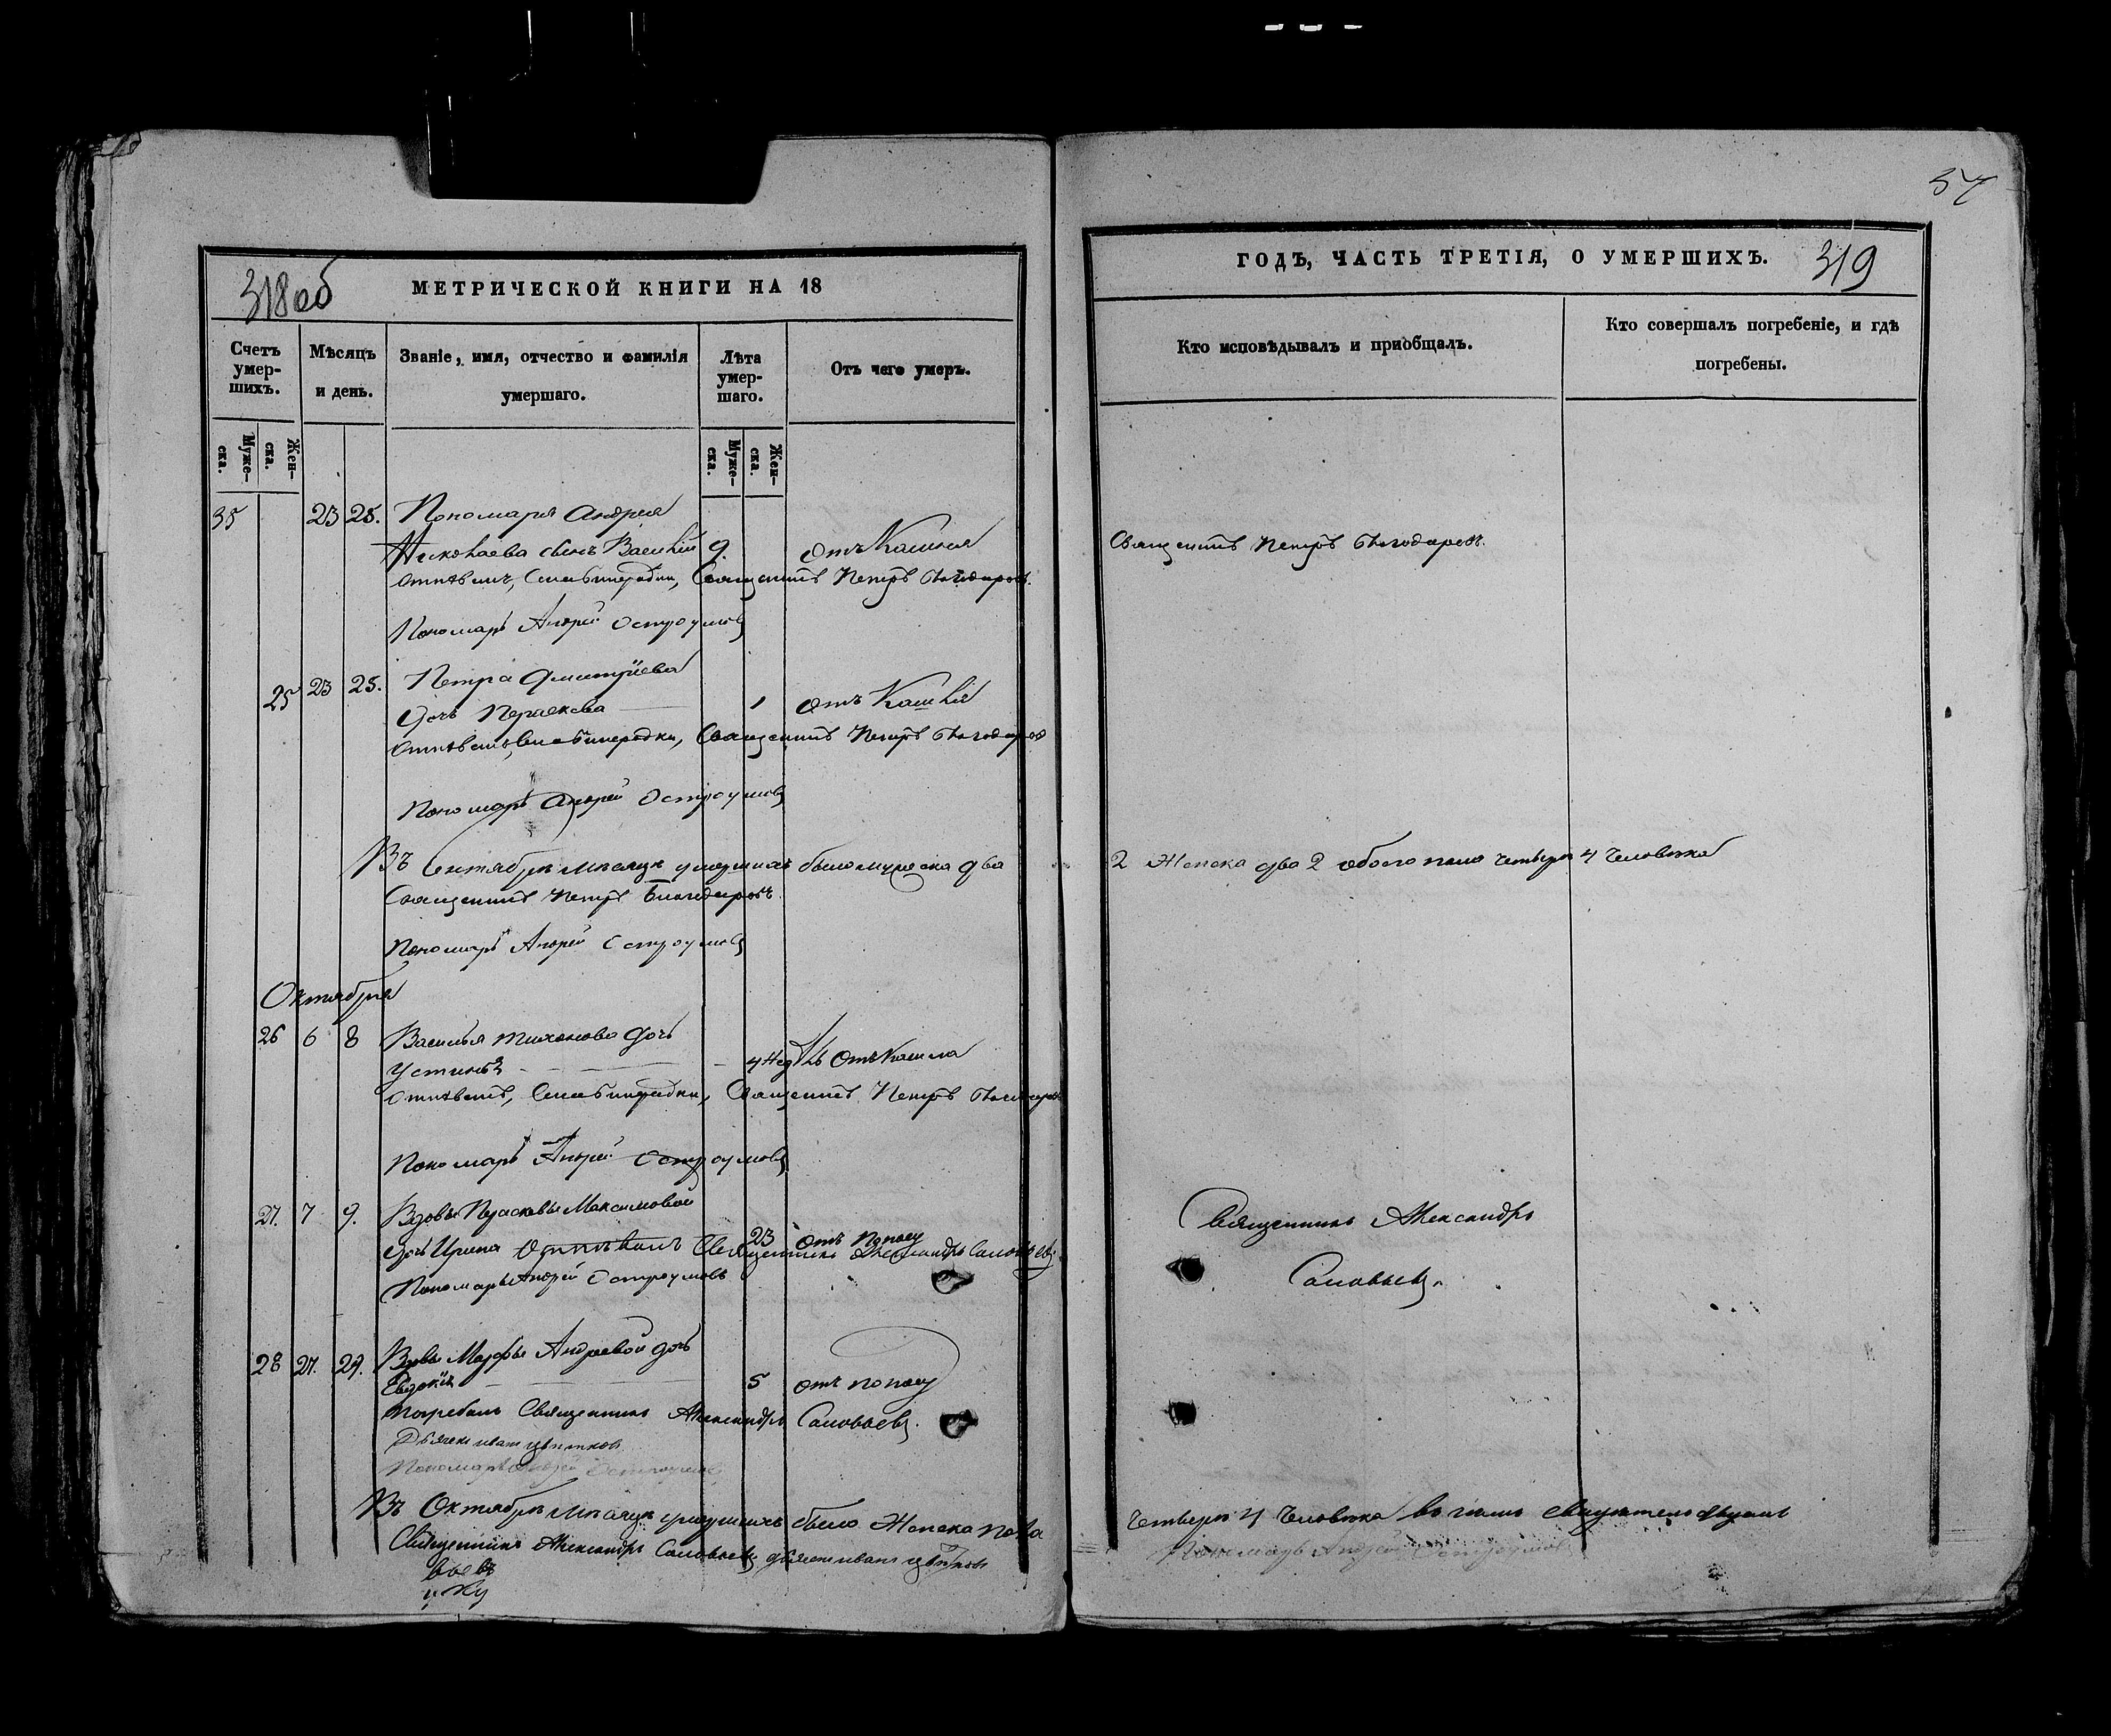 57
318 об
МЕТРИЧЕСКОЙ КНИГИ НА 18
Счетъ умер-шихъ.
Мѣсяцъ и день.
Званіе, имя, отчество и фамилія умершаго.
Лѣта умер-шаго.
Отъ чего умеръ.
Муже-ска.
Жен-ска.
Муже-ска.
Жен-ска.
35 23 25. Пономаря Андрея
Николаева сынъ Василій 9. отъ Кашля
Священникъ Петръ Благодаровъ.
Пономарь Андрей Остроумовъ
25 23 25. Петра Дмитріева
дочь 1 отъ Кашля
Священникъ Петръ Благодаровъ
Пономарь Андрей Остроумовъ
Въ Сентябрѣ мѣсяцѣ умершихъ было мужеска два
Священникъ Петръ Благодаровъ
Пономарь Андрей Остроумовъ
Октября
26 6 8 Василья Тихонова дочь
Устинья 4 нед отъ Кашля
Священникъ Петръ Благодаровъ
Пономарь Андрей Остроумовъ
27. 7 9. Вдовы Прасковьи Максимовой
дочь Ирина 23 отъ поносу
Отпѣвалъ Священникъ Александръ Соловьевъ
Пономарь Андрей Остроумовъ
28 27. 29. Вдовы Марфы Андреевой дочь
Евдокія 5 отъ поносу
Погребалъ Священникъ Александръ Соловьевъ.
Дьячекъ Иванъ Цвѣтковъ
Пономарь Андрей Остроумовъ
Въ Октябрѣ мѣсяцѣ умершихъ было Женска пола
Священникъ Александръ Соловьевъ дьячекъ Иванъ Цвѣтковъ
ГОДЪ, ЧАСТЬ ТРЕТІЯ, О УМЕРШИХЪ.
319
Кто исповѣдывалъ и пріобщалъ.
Кто совершалъ погребеніе, и гдѣ погребены.
Священникъ Петръ Благодаровъ.
2 Женска два 2 обоего пола четверо 4 человѣка
Священникъ Александръ
Соловьевъ.
четверо 4 человѣка въ чемъ свидѣтельствуемъ
Пономарь Андрей Остроумовъ